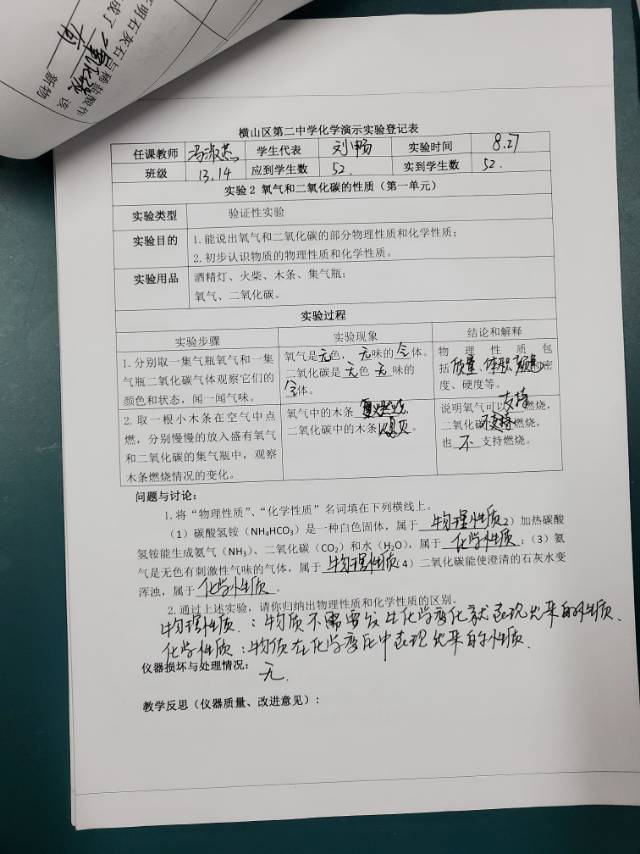 横山区第二中学化学演示实验登记表
任课教师 学生代表 刘畅 实验时间 8.27
班级 13.14 应到学生数 52. 实到学生数 52.
实验 2 氧气和二氧化碳的性质（第一单元）
实验类型 验证性实验
实验目的 1.能说出氧气和二氧化碳的部分物理性质和化学性质；
2.初步认识物质的物理性质和化学性质。
实验用品 酒精灯、火柴、木条、集气瓶；
氧气、二氧化碳。
实验过程
实验步骤 实验现象 结论和解释
1.分别取一集气瓶氧气和一集气瓶二氧化碳气体观察它们的颜色和状态，闻一闻气味。
氧气是无色，无味的气体。
二氧化碳是无色无味的
气体。
物理性质包
括 密
度、硬度等。
2.取一根小木条在空气中点
燃，分别慢慢的放入盛有氧气
和二氧化碳的集气瓶中，观察
木条燃烧情况的变化。
氧气中的木条
二氧化碳中的木条熄灭。
说明氧气可以支持燃烧，
二氧化碳不支持燃烧，
也不支持燃烧。
问题与讨论：
1.将“物理性质”、“化学性质”名词填在下列横线上。
（1）碳酸氢铵（NH₄HCO₃）是一种白色固体，属于物理性质2）加热碳酸
氢铵能生成氨气（NH₃）、二氧化碳（CO₂）和水（H₂O），属于化学性质；（3）氨
气是无色有刺激性气味的气体，属于物理性质4）二氧化碳能使澄清的石灰水变
浑浊，属于化学性质.
2.通过上述实验，请你归纳出物理性质和化学性质的区别。
物理性质：物质不需要发生化学变化就表现出来的性质.
化学性质：物质在化学变化中表现出来的性质.
仪器损坏与处理情况：无.
教学反思（仪器质量、改进意见）：